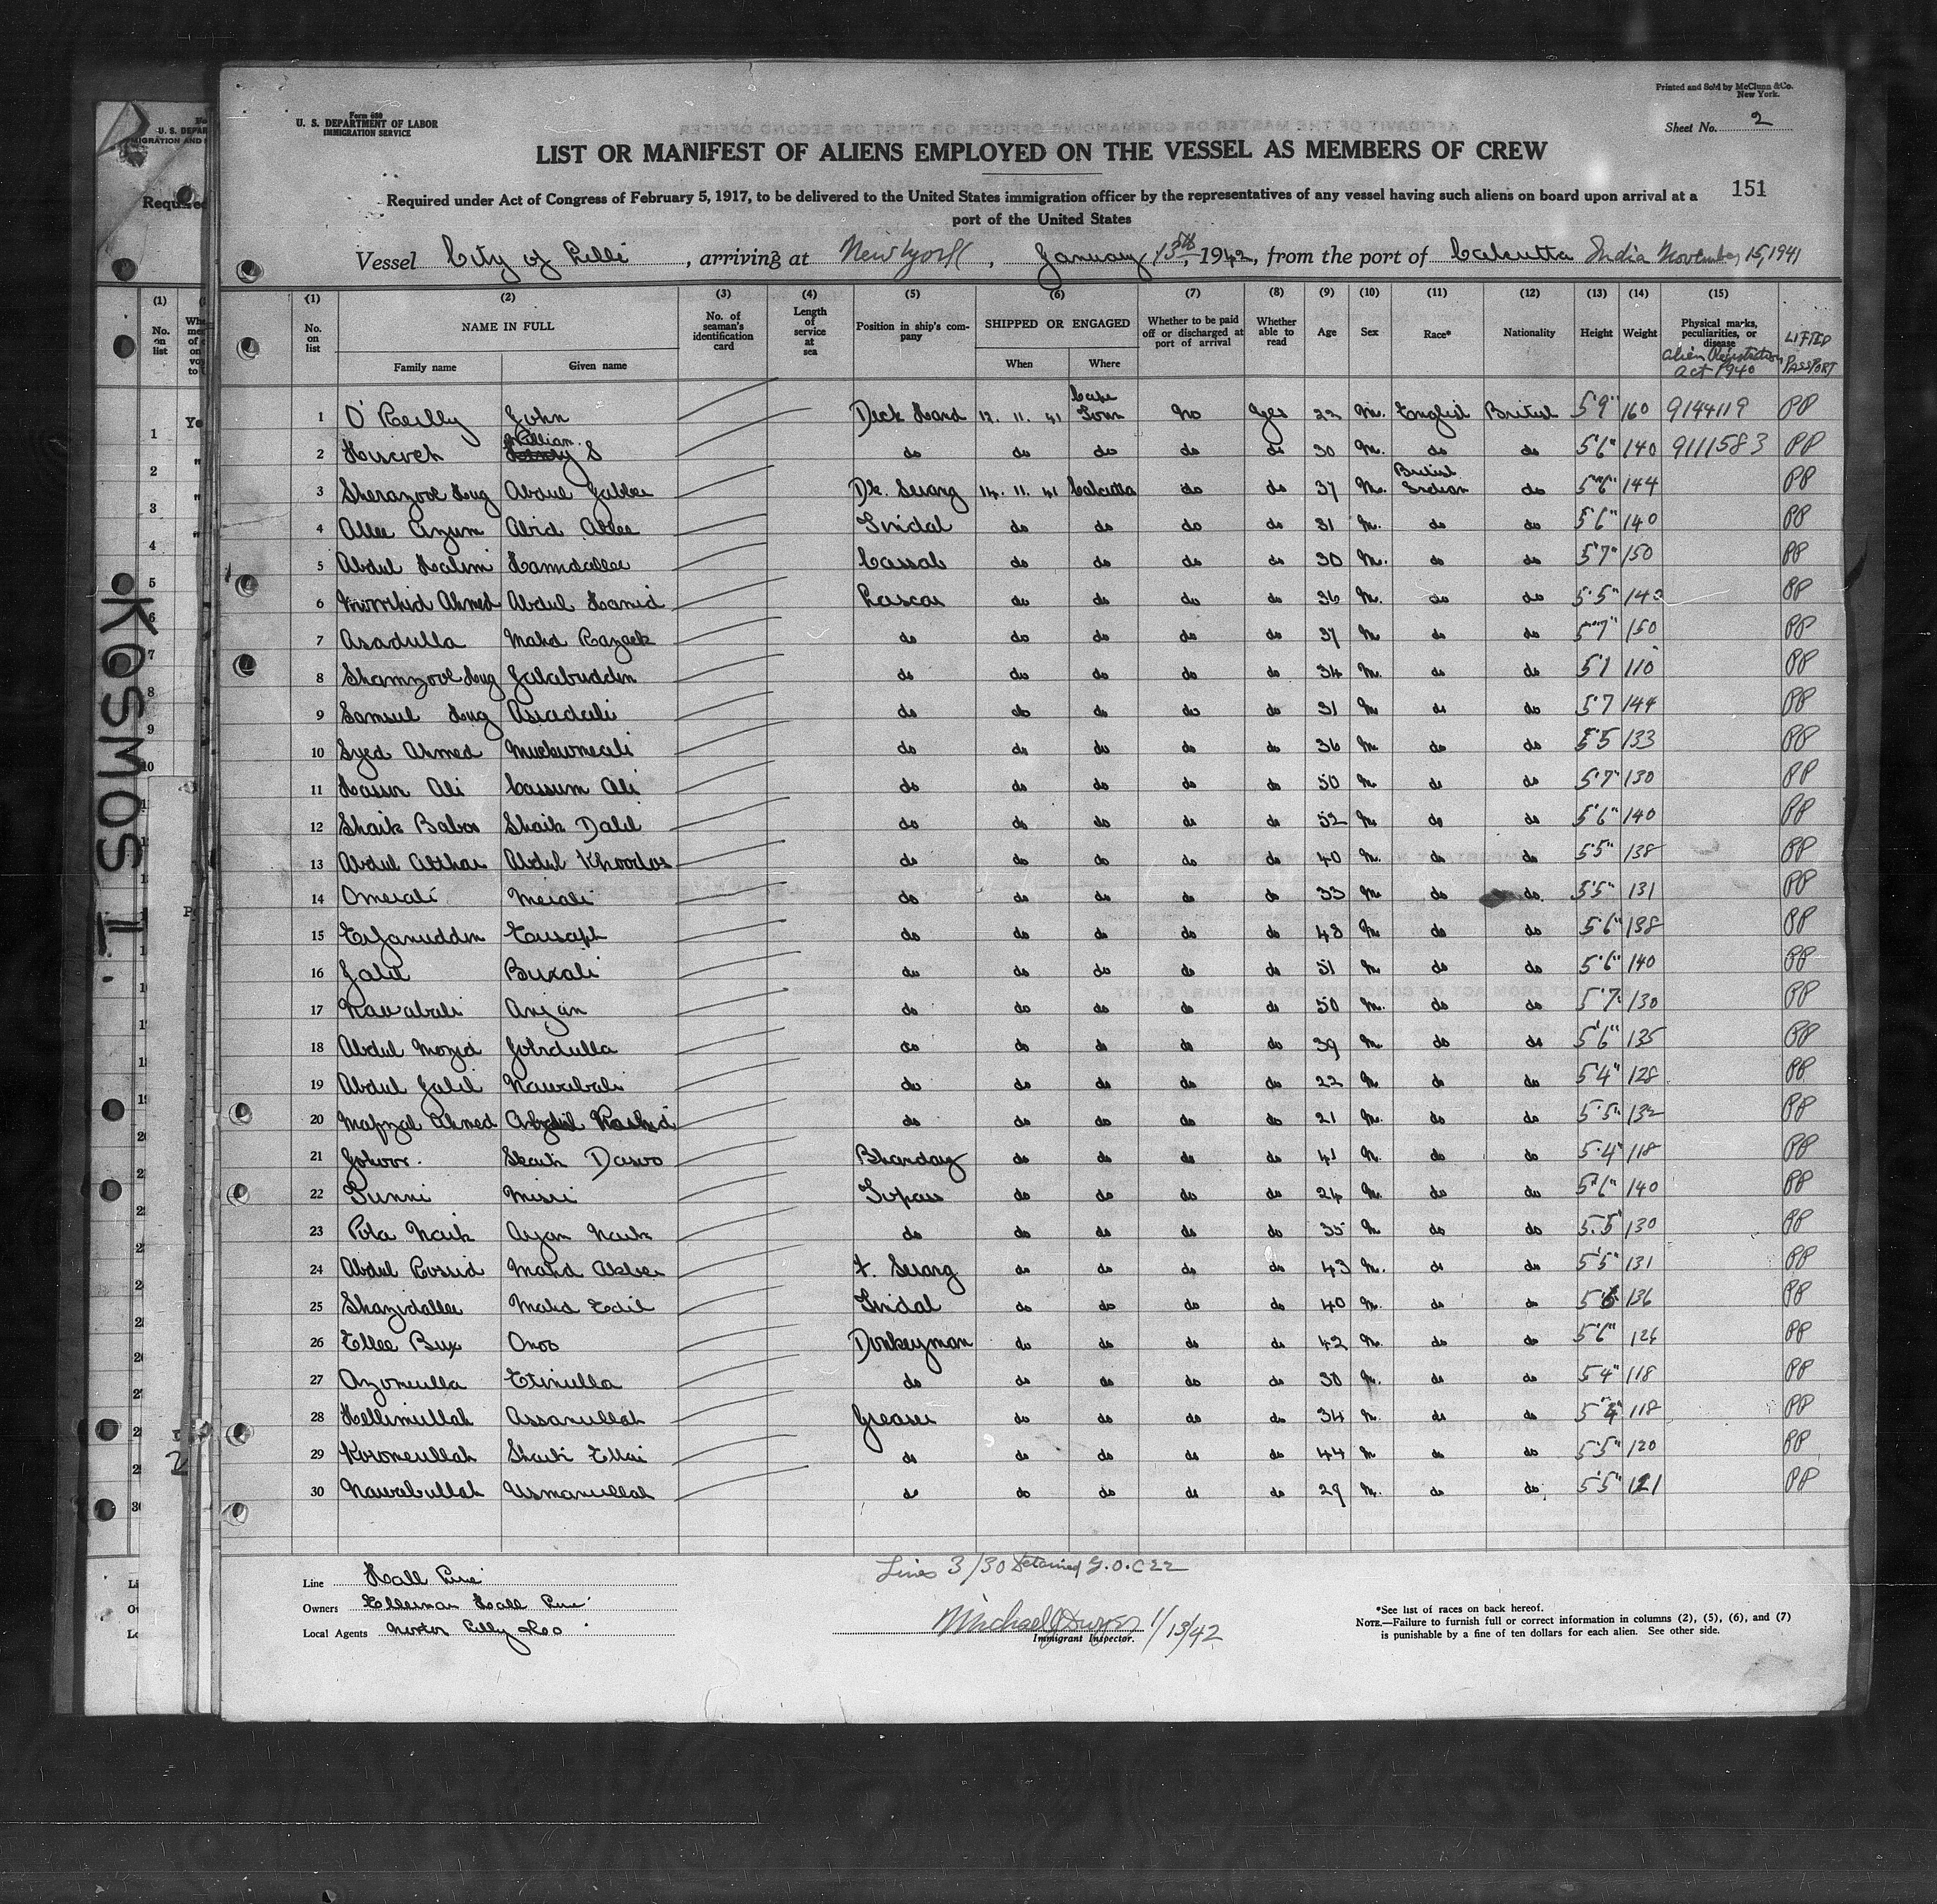 Printed and Sold by McClunn & Co.
New York.
Form 680
U. S. DEPARTMENT OF LABOR
IMMIGRATION SERVICE
Sheet No. 2
LIST OR MANIFEST OF ALIENS EMPLOYED ON THE VESSEL AS MEMBERS OF CREW
Required under Act of Congress of February 5, 1917, to be delivered to the United States immigration officer by the representatives of any vessel having such aliens on board upon arrival at a
port of the United States
151
Vessel City of Delhi, arriving at New York, January 13th, 1942, from the port of Calcutta India November 15, 1941
(1) (2) (3) (4) (5) (6) (7) (8) (9) (10) (11) (12) (13) (14) (15)
No. on list NAME IN FULL Family name Given name No. of seaman's identification card Length of service at sea Position in ship's company SHIPPED OR ENGAGED When Where Whether to be paid off or discharged at port of arrival Whether able to read Age Sex Race* Nationality Height Weight Physical marks, peculiarities, or disease Alien Registration Act 1940 LIFTED PASSPORT
1 O'Reilly John Deck Hand 12. 11. 41 Cape Town No Yes 22 M. English British 5'9" 160 9144119 PP
2 William S do do do do do 30 M. do do 5'6" 140 9111583 PP
3 Sherazool Hug Abdul Jabber Dk. Serang 14. 11. 41 Calcutta do do 37 M. British Indian do 5'6" 144 PP
4 Allee Azum Abid Allee Tindal do do do do 31 M. do do 5'6" 140 PP
5 Abdul Halim Hamidallee Cassab do do do do 30 M. do do 5'7" 150 PP
6 Morshid Ahmed Abdul Hamid Lascar do do do do 36 M. do do 5'5" 140 PP
7 Asadulla Mahd Razack do do do do do 37 M do do 5'7" 150 PP
8 Shamzool Hug Jalabuddin do do do do do 34 M. do do 5'1 110 PP
9 Samsul Hug Asradali do do do do do 31 M do do 5'7 144 PP
10 Syed Ahmed do do do do do 36 M. do do 5'5 133 PP
11 Hasson Ali Cassum Ali do do do do do 50 M. do do 5'7" 130 PP
12 Shaik Baboo Shaik Dalil do do do do do 52 M do do 5'6" 140 PP
13 Abdul Khoodos do do do do do 40 M. do do 5'5" 138 PP
14 Omerali Merali do do do do do 33 M do do 5'5" 131 PP
15 Erfanuddin Eusaph do do do do do 48 M do do 5'6" 138 PP
16 Jalil Buxali do do do do do 51 M do do 5'6" 140 PP
17 Nawabali Anjan do do do do do 50 M. do do 5'7" 130 PP
18 Abdul Mozid Jobdulla do do do do do 39 M. do do 5'6" 135 PP
19 Abdul Jalil Nawabali do do do do do 22 M. do do 5'4" 128 PP
20 Mafzal Ahmed Abdul Rashid do do do do do 21 M. do do 5'5" 132 PP
21 Johoor. Shaik Dasoo Bhandary do do do do 41 M. do do 5'4" 118 PP
22 Tunni Misri Topass do do do do 24 M. do do 5'6" 140 PP
23 Pola Naik Arjan Naik do do do do do 35 M. do do 5'5" 130 PP
24 Abdul Rossid Mahd Akber F. Serang do do do do 43 M. do do 5'5" 131 PP
25 Shazidallee Mahd Edil Tindal do do do do 40 M. do do 136 PP
26 Ellee Bux Onoo Donkeyman do do do do 42 M. do do 5'6" 126 PP
27 Azomulla Etimulla do do do do do 30 M. do do 5'4" 118 PP
28 Hellimullah Assanullah Greaser do do do do 34 M. do do 5'4" 118 PP
29 Koromeullah Shaik Ellai do do do do do 44 M do do 5'5" 120 PP
30 Nawabullah Usmanullah do do do do do 29 M. do do 5'5" 121 PP
Line Hall Line
Owners Ellerman Hall Line
Local Agents Norton Lilly & Co
Lines 3/30 Detained
Michael J Dwyer 1/13/42
Immigrant Inspector.
*See list of races on back hereof.
NOTE.—Failure to furnish full or correct information in columns (2), (5), (6), and (7)
is punishable by a fine of ten dollars for each alien. See other side.
KOSMOS II.